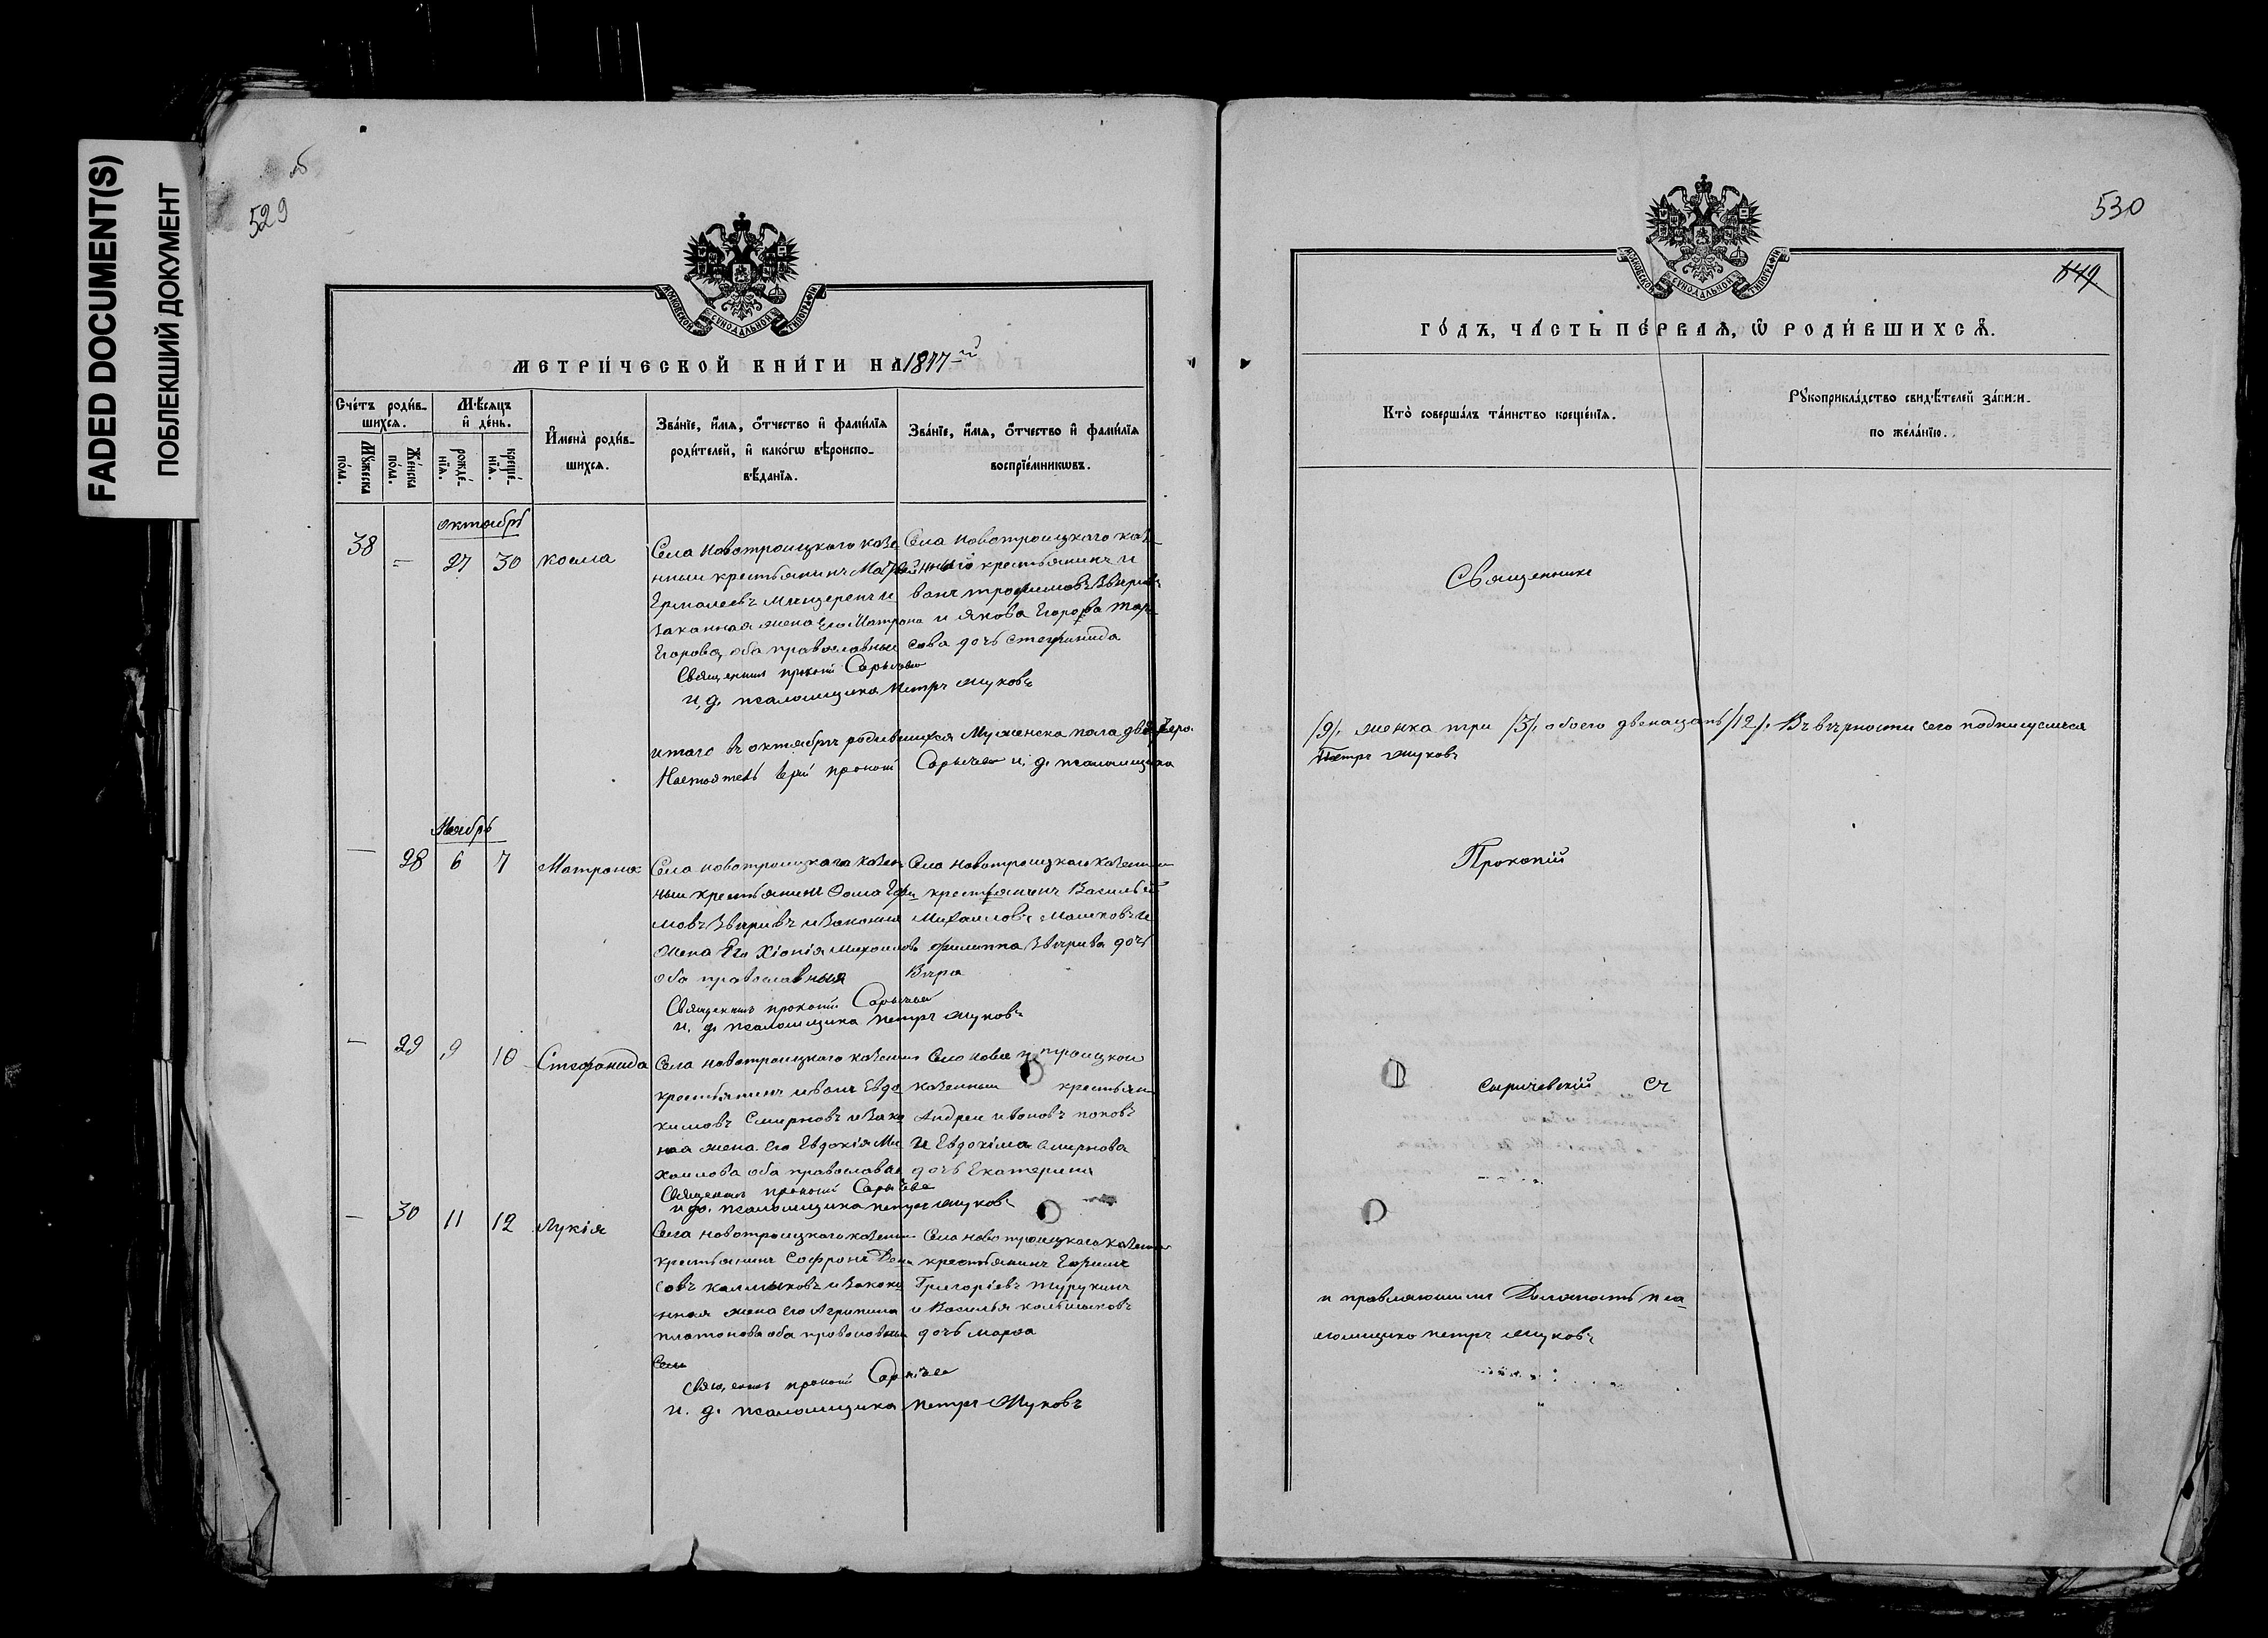 FADED DOCUMENT(S)
ПОБЛЕКШИЙ ДОКУМЕНТ
об
529
МОСКОВСКОЙ СѴНОДАЛЬНОЙ ТИПОГРАФІИ
МЕТРИ́ЧЕСКОЙ КНИ́ГИ НА 1877-й
Сче́тъ роди́в-
шихсѧ.
Мѣ́сѧцъ
и҆ де́нь.
Мꙋ́жеска
по́ла.
Же́нска
по́ла.
рожде́-
нїѧ.
креще́-
нїѧ.
И҆мена̀ роди́в-
шихсѧ.
Зва́нїе, и҆́мѧ, ѻ҆́тчество и҆ фами́лїѧ
роди́телей, и҆ како́гѡ вѣроиспо-
вѣ́данїѧ.
Зва́нїе, и҆́мѧ, ѻ҆́тчество и҆ фами́лїѧ
воспрїе́мникѡвъ.
октябрь
38 – 27 30 Косма
Села Новотроицкого казе
нный крестьянинъ Матвей
Ермолаевъ и
законная жена Его Матрона
Егорова, оба православные
Села Новотроицкого каз
крестьянинъ И
ванъ трофимовъ Зверевъ
и Якова Егорова
сова дочь стефанида
Священникъ прокопій Сарычевъ
и. д. псаломщика петръ Жуковъ
итого въ октябрѣ родившихся Мужеска пола
Настоятель Іерей прокопій Сарычевъ и. д. псаломщика
Ноябрь
– 28 6 7 Матрона
Села новотроицкаго казен
ный крестьянинъ Ѳома Ефи
мовъ Звѣревъ и Законная
Жена Его Хіонія михаилова
оба православныя
Села Новотроицкаго казенный
крестьянинъ Василій
Михаиловъ Машковъ и
филиппа Звѣрева дочь
Вѣра
Священникъ прокопій Сарычевъ
и. д. псаломщика петръ Жуковъ
– 29 9 10 Стефанида
Села новотроицкаго казенный
крестьянинъ иванъ Евдо
кимовъ Смирновъ и Зако
ная жена его Евдокія Ми
хаилова оба православные
Села ново троицкого
казенный крестьянинъ
Андрей ивановъ поповъ
и Евдокіма Смирнова
дочь Екатерина
Священникъ прокопій Сарычевъ
и до. псаломщика петръ Жуковъ
– 30 11 12 Лукія
Села новотроицкаго казенный
крестьянинъ Софронъ Дени
совъ калмыковъ и Законо
нная жена его Агрипина
платонова оба православные
Села новотроицкаго казенный
крестьянинъ Ефимъ
Григоріевъ Турукинъ
и Василья калмыковъ
дочь марѳа
Села
Священникъ прокопій Сарычевъ
и. д. псаломщика петръ Жуковъ
530
649
МОСКОВСКОЙ СѴНОДАЛЬНОЙ ТИПОГРАФІИ
ГО́ДЪ, ЧА́СТЬ ПЕ́РВАѦ, Ѡ҆ РОДИ́ВШИХСѦ.
Кто̀ соверша́лъ та́инство креще́нїѧ.
Рꙋкоприкла́дство свидѣ́телей за́писи
по жела́нїю.
Священникъ
/9/, женска три /3/, обоего двенацать /12/. Въ вѣрности сего подписуемся
Петръ Жуковъ
Прокопій
Сарычевскій Съ
и правляющимъ Должность пса
ломщика петръ Жуковъ